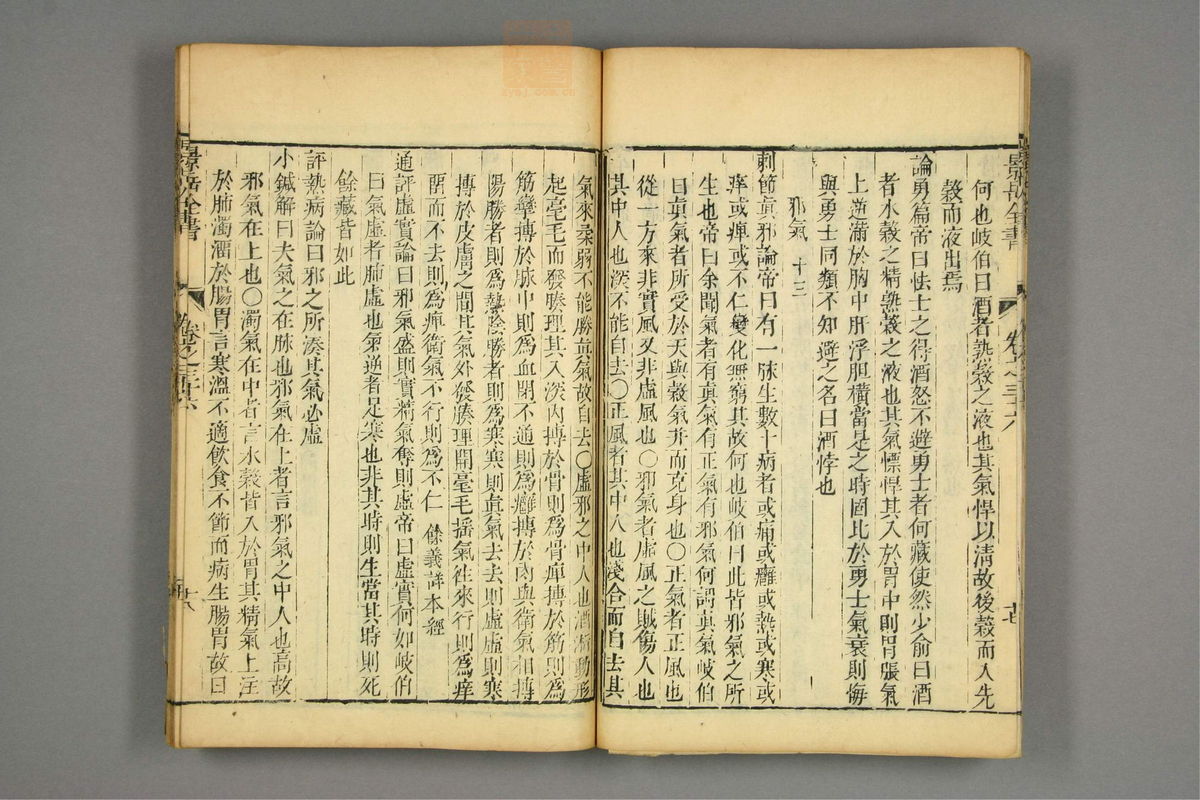 何也岐伯曰酒者熟穀之液也其氣悍以清故後穀而入先
穀而液出焉
論勇篇帝曰怯士之得酒怒不避勇士者何藏使然少俞曰酒
者水穀之精熟穀之液也其氣慓悍其入於胃中則胃脹氣
上逆滿於胸中肝浮胆橫當是之時固比於勇士氣衰則悔
與勇士同類不知避之名曰酒悖也
邪氣 十三
刺節眞邪論帝曰有一脉生數十病者或痛或癰或熱或寒或
痒或痺或不仁變化無窮其故何也岐伯曰此皆邪氣之所
生也帝曰余聞氣者有眞氣有正氣有邪氣何謂眞氣岐伯
曰眞氣者所受於天與穀氣并而克身也〇正氣者正風也
從一方來非實風又非虛風也〇邪氣者虛風之賊傷人也
其中人也深不能自去〇正風者其中人也淺合而自去其
氣來柔弱不能勝眞氣故自去〇虛邪之中人也洒淅動形
起毫毛而發腠理其入深內搏於骨則爲骨痺搏於筋則爲
筋攣搏於脉中則爲血閉不通則爲癰搏於肉與衛氣相搏
陽勝者則爲熱陰勝者則爲寒寒則眞氣去去則虛虛則寒
搏於皮膚之間其氣外發腠理開毫毛搖氣徃來行則爲痒
畱而不去則爲痺衛氣不行則爲不仁 餘義詳本經
通評虛實論曰邪氣盛則實精氣奪則虛帝曰虛實何如岐伯
曰氣虛者肺虛也氣逆者足寒也非其時則生當其時則死
餘藏皆如此
評熱病論曰邪之所湊其氣必虛
小鍼解曰夫氣之在脉也邪氣在上者言邪氣之中人也高故
邪氣在上也〇濁氣在中者言水穀皆入於胃其精氣上注
於肺濁溜於腸胃言寒溫不適飲食不節而病生腸胃故曰
景岳全書